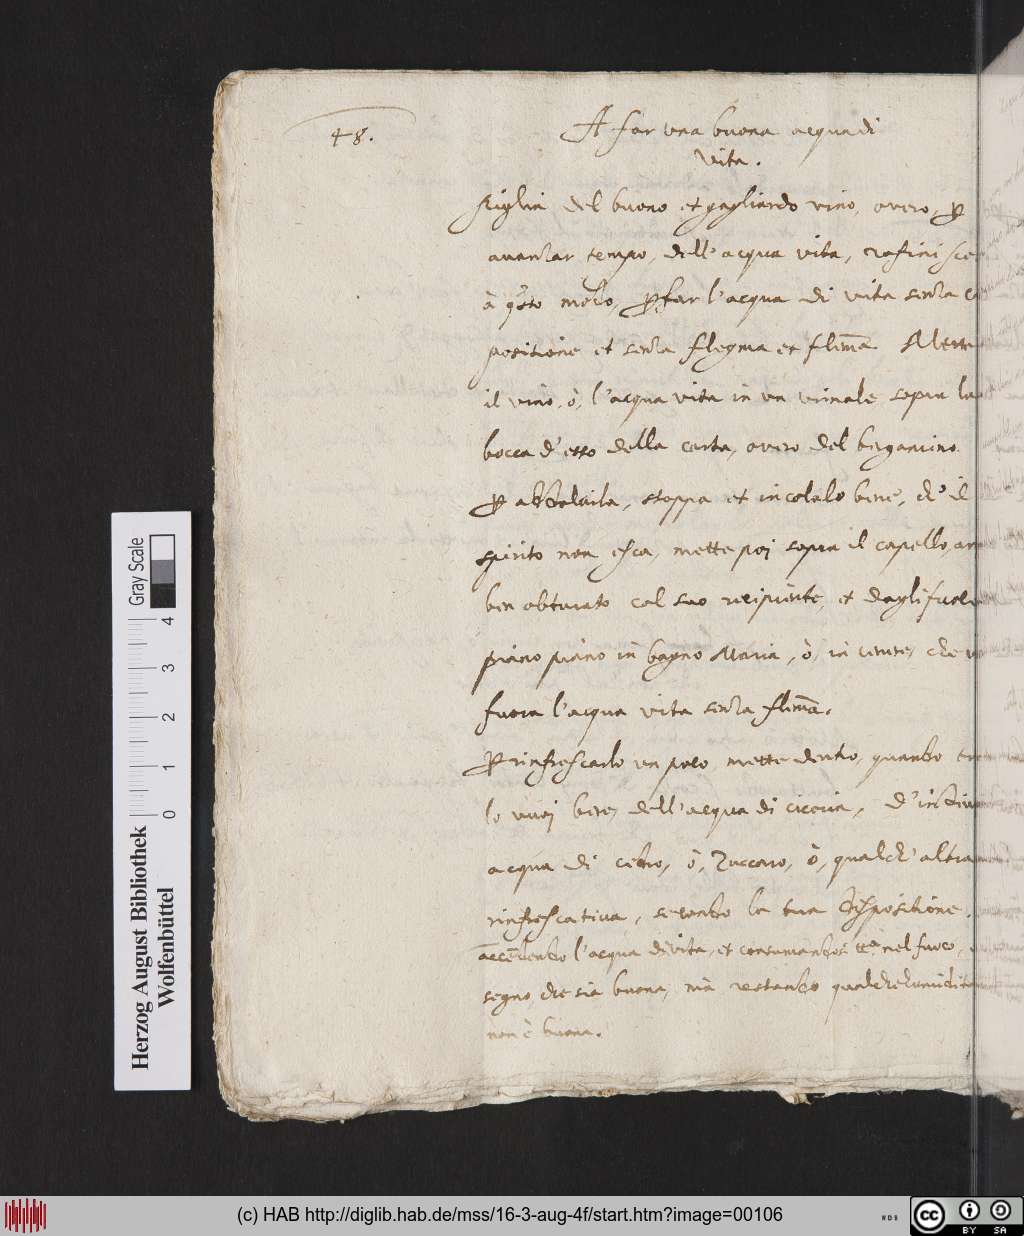 48.
A far una buona acqua di
vita.
Figlia del buono et gagliardo vino, overo, p
avanzar tempo, dell'acqua vita, rafinisce
à q̃sto modo, p far l'acqua di vita senza
positione et senza flegma et flem̃a. Mette
il vino, ò, l'acqua vita in un urinale sopra la
bocca d'esso della carta, overo del bergamino
p stoppa et incolalo bene, ch'il
spirito non esca, mette poi sopra il capello,
ben obturato col suo recipiente, et dagli fuoco
piano piano in bagno Maria, ò, in cenere, che
fuora l'acqua vita senza flem̃a.
P rinfrescarlo un poco, mette dentro, quando
lo vuoi bere, dell'acqua di cicoria, d'indivia
acqua di cedro, ò, Zuccaro, ò, qualch'altra
rinfrescativa, secondo la tua dispositione.
accẽdendo l'acqua di vita, et consumandosi tta nel fuoco,
segno che sia buona, mà restando qualche humidità
non è buona.
Gray Scale
0 1 2 3 4
Herzog August Bibliothek
Wolfenbüttel
(c) HAB http://diglib.hab.de/mss/16-3-aug-4f/start.htm?image=00106
WDB
cc BY SA